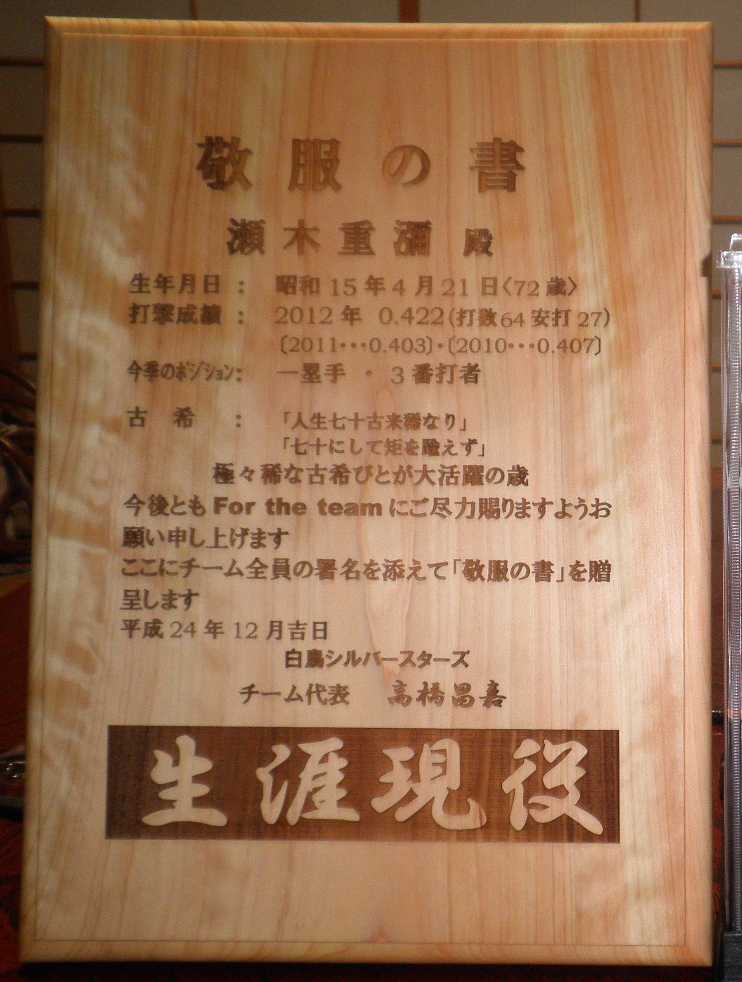 敬服の書
瀬木重彌 殿
生年月日 : 昭和15年4月21日〈72歳〉
打撃成績 : 2012年 0.422(打数64安打27)
〔2011・・・0.403〕・〔2010・・・0.407〕
今季のポジション: 一塁手 ・ 3番打者
古 希 : 「人生七十古来稀なり」
「七十にして矩を踰えず」
極々稀な古希びとが大活躍の歳
今後とも For the team にご尽力賜りますようお
願い申し上げます
ここにチーム全員の署名を添えて「敬服の書」を贈
呈します
平成24年12月吉日
白鳥シルバースターズ
チーム代表 高橋昌嘉
生涯現役